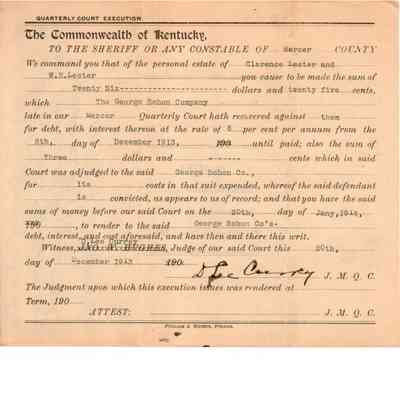 QUARTERLY COURT EXECUTION.
The Commonwealth of Kentucky,
TO THE SHERIFF OR ANY CONSTABLE OF Mercer COUNTY
We command you that of the personal estate of Clarence Lester and
W.H.Lester you cause to be made the sum of
Twenty Six dollars and twenty five cents,
which The George Bohon Company
late in our Mercer Quarterly Court hath recovered against them
for debt, with interest thereon at the rate of 6 per cent per annum from the
8th, day of December 1913, 190 until paid; also the sum of
Three dollars and cents which in said
Court was adjudged to the said George Bohon Co.,
for its costs in that suit expended, whereof the said defendant
is convicted, as appears to us of record; and that you have the said
sums of money before our said Court on the 20th, day of Jany, 1914,
190 , to render to the said George Bohon Co's-
debt, interest, and cost aforesaid, and have then and there this writ.
D.Lee Currey
Witness, HUGHES, Judge of our said Court this 20th,
day of December 1913 190 D Lee Currey J. M. Q. C.
The Judgment upon which this execution issues was rendered at
Term, 190
ATTEST: J. M. Q. C.